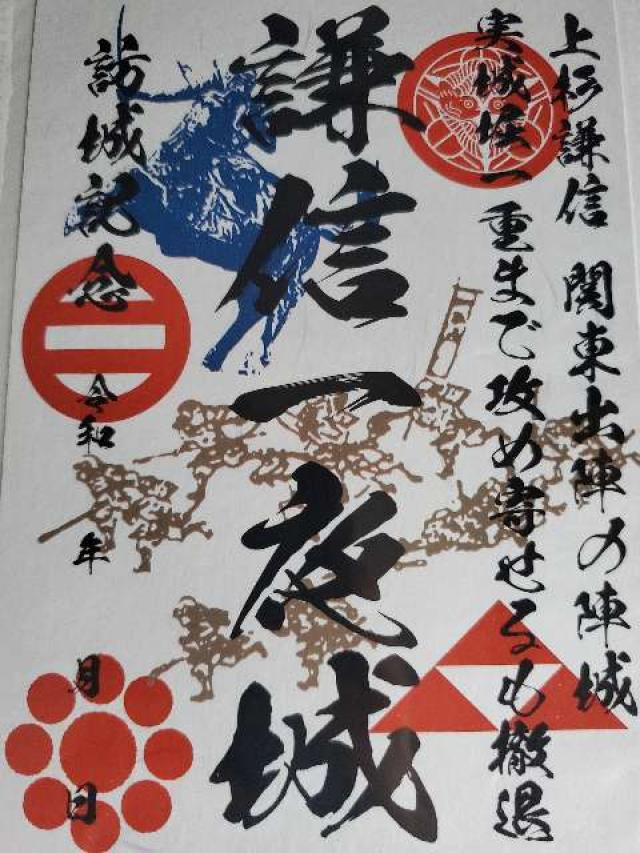 上杉謙信 関東出陣の陣城
実城堀一重まで攻め寄せるも撤退
謙信一夜城
訪城記念 令和 年
月 日